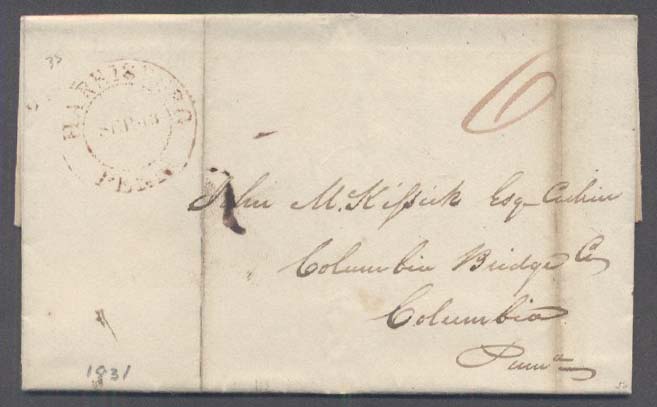 HARRISBURG
SEP 13
PENN
6
John M.Kissick Esq Cashier
Columbia Bridge Co
Columbia
Penna
1831